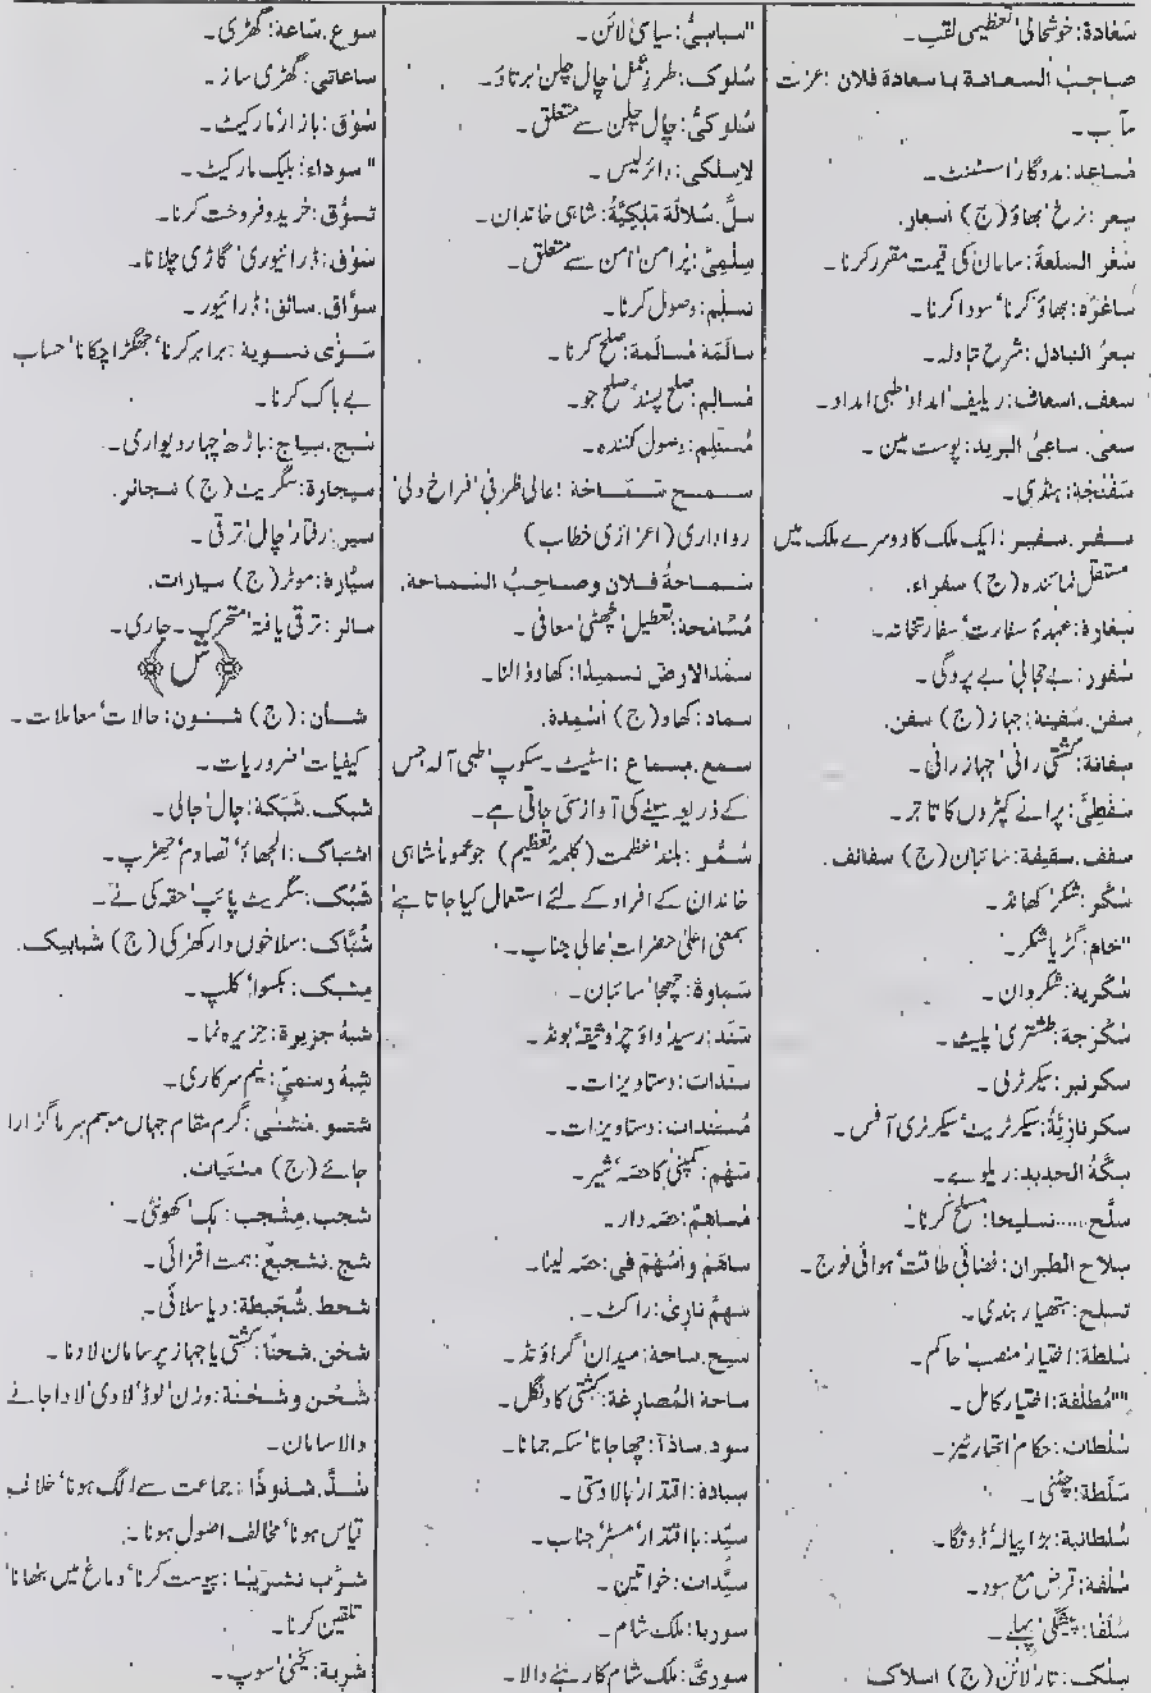 سَعَادة: خوشحالی' تعظیمی لقب۔
صاحبُ السعادة يا سعادة فلان: عزت
مآب۔
مُساعِد: مددگار' اسسٹنٹ۔
سِعر: نرخ' بھاؤ (ج) اسعار.
سَعَّر السلعةَ: سامان کی قیمت مقرر کرنا۔
ساعَرَه: بھاؤ کرنا' سودا کرنا۔
سِعرُ التبادل: شرح تبادلہ۔
سعف. اسعاف: ریلیف' امداد' طبی امداد۔
سعى. ساعىُ البريد: پوسٹ مین۔
سَفْتَجة: ہنڈی۔
سفر. سفير: ایک ملک کا دوسرے ملک میں
مستقل نمائندہ (ج) سفراء.
سِفارة: عہدۂ سفارت' سفارتخانہ۔
سُفور: بے حجابی' بے پردگی۔
سفن. سَفينة: جہاز (ج) سفن.
سِفانة: کشتی رانی' جہاز رانی۔
سَقَطِىّ: پرانے کپڑوں کا تاجر۔
سقف. سقيفة: سائبان (ج) سقائف.
سُكَّر: شکر' کھانڈ۔
"خام: گڑ یا شکر۔
سُكَّرية: شکردان۔
سُكُرَّجة: طشتری' پلیٹ۔
سكرتير: سیکرٹری۔
سكرتاريَّةُ: سیکرٹریٹ' سیکرٹری آفس۔
سِكَّةُ الحديد: ریلوے۔
سلَّح.....تسليحا: مسلح کرنا۔
سِلاح الطيران: فضائی طاقت' ہوائی فوج۔
تسلح: ہتھیار بندی۔
سُلطة: اختیار' منصب' حاکم۔
""مُطلَقة: اختیار کامل۔
سُلطات: حکام' اتھارٹیز۔
سَلَطة: چٹنی۔
سُلطانية: بڑا پیالہ' ڈونگا۔
سُلفة: قرض مع سود۔
سَلَفًا: پیشگی' پہلے۔
سِلك: تار' لائن (ج) اسلاک
"سياسىُّ: سیاسی لائن۔
سُلوک: طرزِ عمل' چال چلن' برتاؤ۔
سُلوكىُّ: چال چلن سے متعلق۔
لاسِلكى: وائرلیس۔
سلَّ. سُلالَة مَلِكِيَّةُ: شاہی خاندان۔
سِلْمِىّ: پرامن' امن سے متعلق۔
تسلُّم: وصول کرنا۔
سالَمَة مُسالَمة: صلح کرنا۔
مُسالِم: صلح پسند' صلح جو۔
مُستلِم: وصول کنندہ۔
سمح سَمَاحة: عالی ظرفی' فراخ دلی'
رواداری (اعزازی خطاب)
سَماحةُ فلان وصاحبُ السَّماحة.
مُسَامَحة: تعطیل' چھٹی' معافی۔
سمَّدالارض تسميدًا: کھاد ڈالنا۔
سماد: کھاد (ج) أسمِدة.
سمع. مِسماع: اسٹیٹ۔سکوپ' طبی آلہ جس
کے ذریعہ سینے کی آواز سنی جاتی ہے۔
سُمُو: بلند' عظمت (کلمۂ تعظیم) جو عموماً شاہی
خاندان کے افراد کے لئے استعمال کیا جاتا ہے'
بمعنی اعلیٰ حضرات' عالی جناب۔
سَماوة: چھجا' سائبان۔
سَنَد: رسید' واؤچر' وثیقہ' بونڈ۔
سندات: دستاویزات۔
مُستندات: دستاویزات۔
سَهْم: کمپنی کا حصہ' شیر۔
مُساهِمٌ: حصہ دار۔
ساهَم وأسْهَمَ فى: حصہ لینا۔
سهمٌ نارىٌ: راکٹ۔
سيح. ساحة: میدان' گراؤنڈ۔
ساحة المُصارعة: کشتی کا دنگل۔
سود. سادَاً: چھا جانا' سکہ جمانا۔
سيادة: اقتدار' بالادستی۔
سيّد: بااقتدار' مسٹر' جناب۔
سيّدات: خواتین۔
سوريا: ملک شام۔
سورىٌّ: ملک شام کا رہنے والا۔
سوع. سَاعة: گھڑی۔
ساعاتى: گھڑی ساز۔
سُوق: بازار' مارکیٹ۔
"سوداء: بلیک مارکیٹ۔
تسوُّق: خرید و فروخت کرنا۔
سَوْق: ڈرائیوری' گاڑی چلانا۔
سوَّاق. سائق: ڈرائیور۔
سَوّى تسوية: برابر کرنا' جھگڑا چکانا' حساب
بے باک کرنا۔
سيج. سياج: باڑھ' چہار دیواری۔
سيجارة: سگریٹ (ج) سجائر.
سير: رفتار' چال' ترقی۔
سيَّارة: موٹر (ج) سيارات.
سائر: ترقی یافتہ' متحرک۔ جاری۔
﴿ش﴾
شأن: (ج) شئون: حالات' معاملات۔
کیفیات' ضروریات۔
شبک. شَبَكة: جال' جالی۔
اشتباک: الجھاؤ' تصادم' جھڑپ۔
شُبُک: سگریٹ پائپ' حقہ کی نے۔
شُبَّاک: سلاخوں دار کھڑکی (ج) شبابيک.
مِشبک: بکسوا' کلپ۔
شبهُ جزيرة: جزیرہ نما۔
شِبهُ رسمىّ: نیم سرکاری۔
شتو. مَشتٰى: گرم مقام جہاں موسم سرما گزارا
جائے (ج) مشتيان.
شجب. مِشْجب: ہک' کھونٹی۔
شج. تشجيعٌ: ہمت افزائی۔
شحط. شُحّيطة: دیا سلائی۔
شحن. شحنًا: کشتی یا جہاز پر سامان لادنا۔
شَحن وشَحنة: وزن' لوڈ' لادی' لادا جانے
والا سامان۔
شَذَّ. شذوذًا: جماعت سے الگ ہونا' خلاف
قیاس ہونا' مخالف اصول ہونا۔
شرَّب تشريبًا: پیوست کرنا' دماغ میں بٹھانا'
تلقین کرنا۔
شُربة: یخنی' سوپ۔